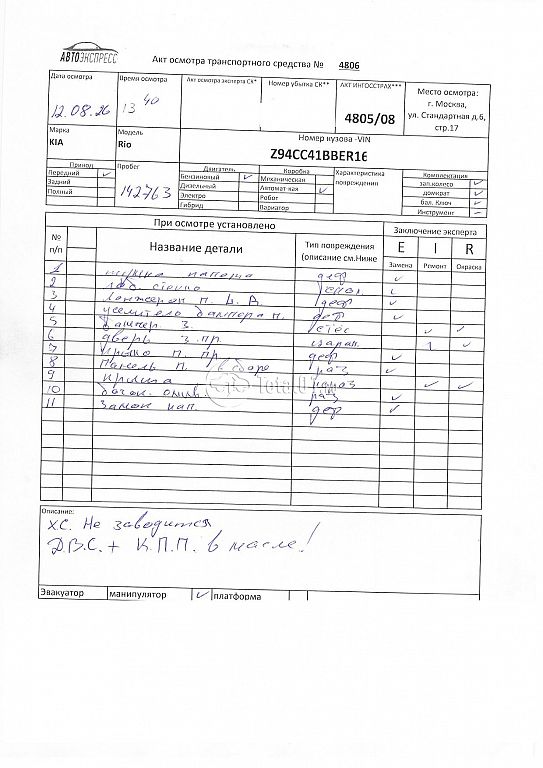 АВТОЭКСПРЕСС
Акт осмотра транспортного средства № 4806
Дата осмотра
Время осмотра
Акт осмотра эксперта СК*
Номер убытка СК**
АКТ ИНГОССТРАХ***
Место осмотра:
г. Москва,
ул. Стандартная д.6,
стр.17
12.08.26
13 40
4805/08
Марка
KIA
Модель
Rio
Номер кузова -VIN
Z94CC41BBER16
Привод
Передний ✓
Задний
Полный
Пробег
142763
Двигатель
Бензиновый ✓
Дизельный
Электро
Гибрид
Коробка
Механическая
Автомат кая ✓
Робот
Вариатор
Характеристика
повреждений
Комплектация
зап.колесо ✓
домкрат ✓
бал. Ключ ✓
Инструмент –
При осмотре установлено
Заключение эксперта
№
п/п
Название детали
Тип повреждений
(описание см.Ниже
E I R
Замена Ремонт Окраска
1 капота деф ✓
2 лоб. стекло
3 Лонжерон п. деф ✓
4 усилитель бампера п. деф ✓
5 Бампер з. ✓ ✓
6 дверь з. пр. царап.
7 Крыло п. пр. деф ✓
8 Панель п. раз ✓
9 крыша ✓ ✓
10 бачок омыв. раз ✓
11 Замок кап. деф ✓
Total01
Описание:
ХС. Не заводится
Д.В.С. + К.П.П. в масле!
Эвакуатор манипулятор ✓ платформа